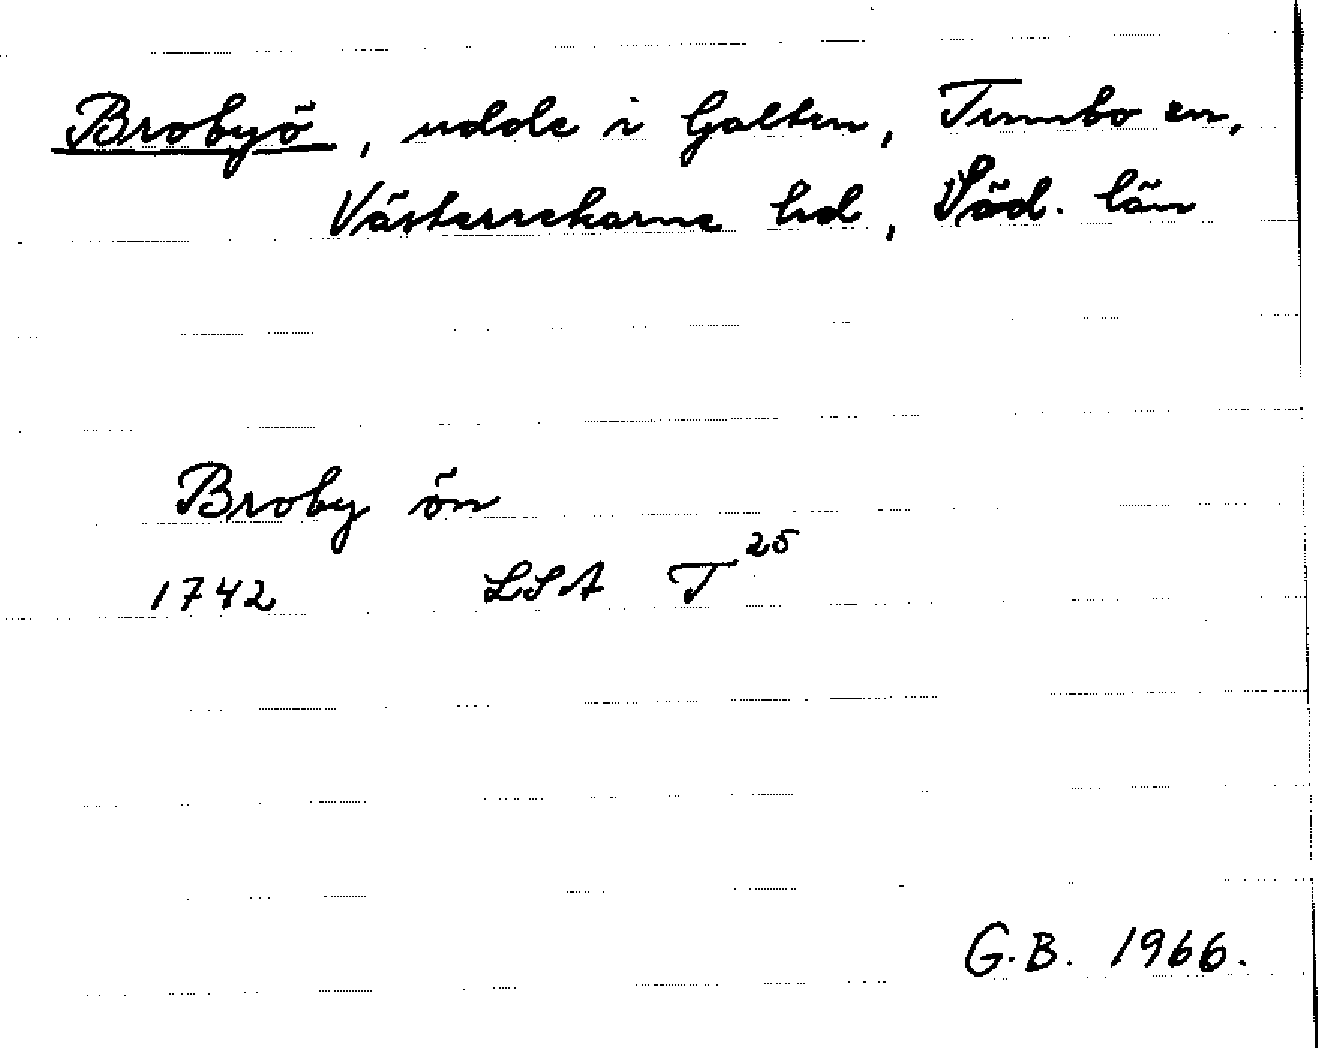 Brobyö, udde i Galten, Tumbo sn,
Västerrekarne hd, Söd. län
Broby ön
1742 LSA T25
G.B. 1966.